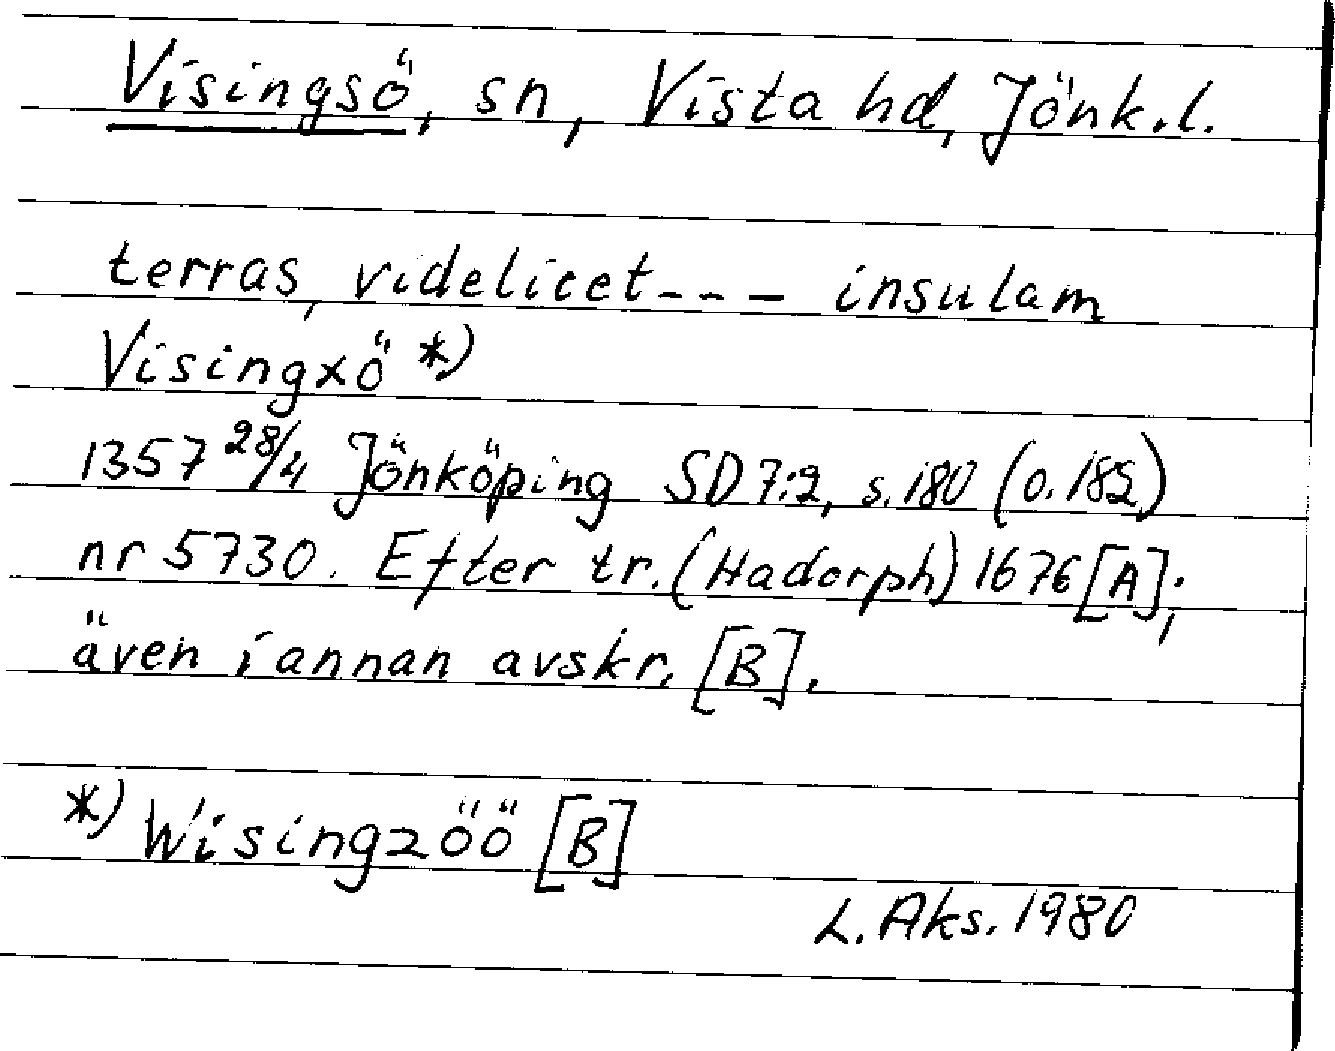 Visingsö, sn, Vista hd, Jönk.l.
terras, videlicet --- insulam
Visingxö *)
1357 28/4 Jönköping SD 7:2, s. 180 (o. 182)
nr 5730. Efter tr. (Hadorph) 1676 [A];
även i annan avskr. [B].
*) Wisingzöö [B]
L. Aks. 1980